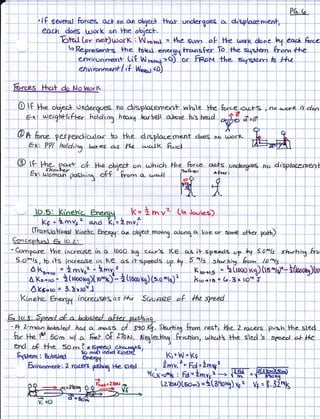 PG. 6
• If several forces act on an object that undergoes a displacement,
each does work on the object.
Total (or net) work: W total = the sum of the work done by each force
↳ Represents the total energy transfer TO the system from the
environment (if W total > 0) or FROM the system to the
environment (if W total < 0)
Forces that do No Work
① If the object undergoes no displacement while the force acts, no work is done
Ex: weightlifter holding heavy barbell above his head
② A force perpendicular to the displacement does no work
Ex: PPl holding boxes as they walk fwd
③ If the part of the object on which the force acts undergoes no displacement
Ex: Woman pushing off from a wall
skater
Before:
After:
10.5: Kinetic Energy K = ½mv² (in Joules)
Kf = ½mvf² and Ki = ½mvi²
(Translational Kinetic Energy: an object moving along a line or some other path)
Conceptual Ex 10.2:
- Compare the increase in a 1000 kg car's KE as it speeds up by 5.0 m/s starting from
5.0 m/s, to its increase in KE as it speeds up by 5 m/s starting from 10 m/s
Kinetic Energy increases as the square of the speed
Ex 10.5: Speed of a bobsled after pushing
- A 2-man bobsled has a mass of 390 kg. Starting from rest, the 2 racers push the sled
for the 1st 50m w/ a Fnet of 270N. Neglecting friction, what's the sled's speed at the
end of the 50m?
System: Bobsled
Environment: 2 racers pushing the sled
Ki + W = Kf
½mvi² + Fd = ½mvf²
(270N)(50m) = ½(390kg)vf²
Vf = 8.32 m/s